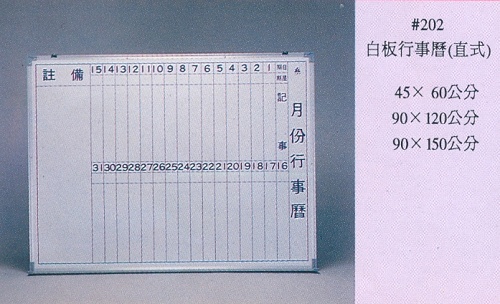 註備 15 14 13 12 11 10 9 8 7 6 5 4 3 2 1
記事
31 30 29 28 27 26 25 24 23 22 21 20 19 18 17 16
月份行事曆
#202
白板行事曆(直式)
45× 60公分
90×120公分
90×150公分